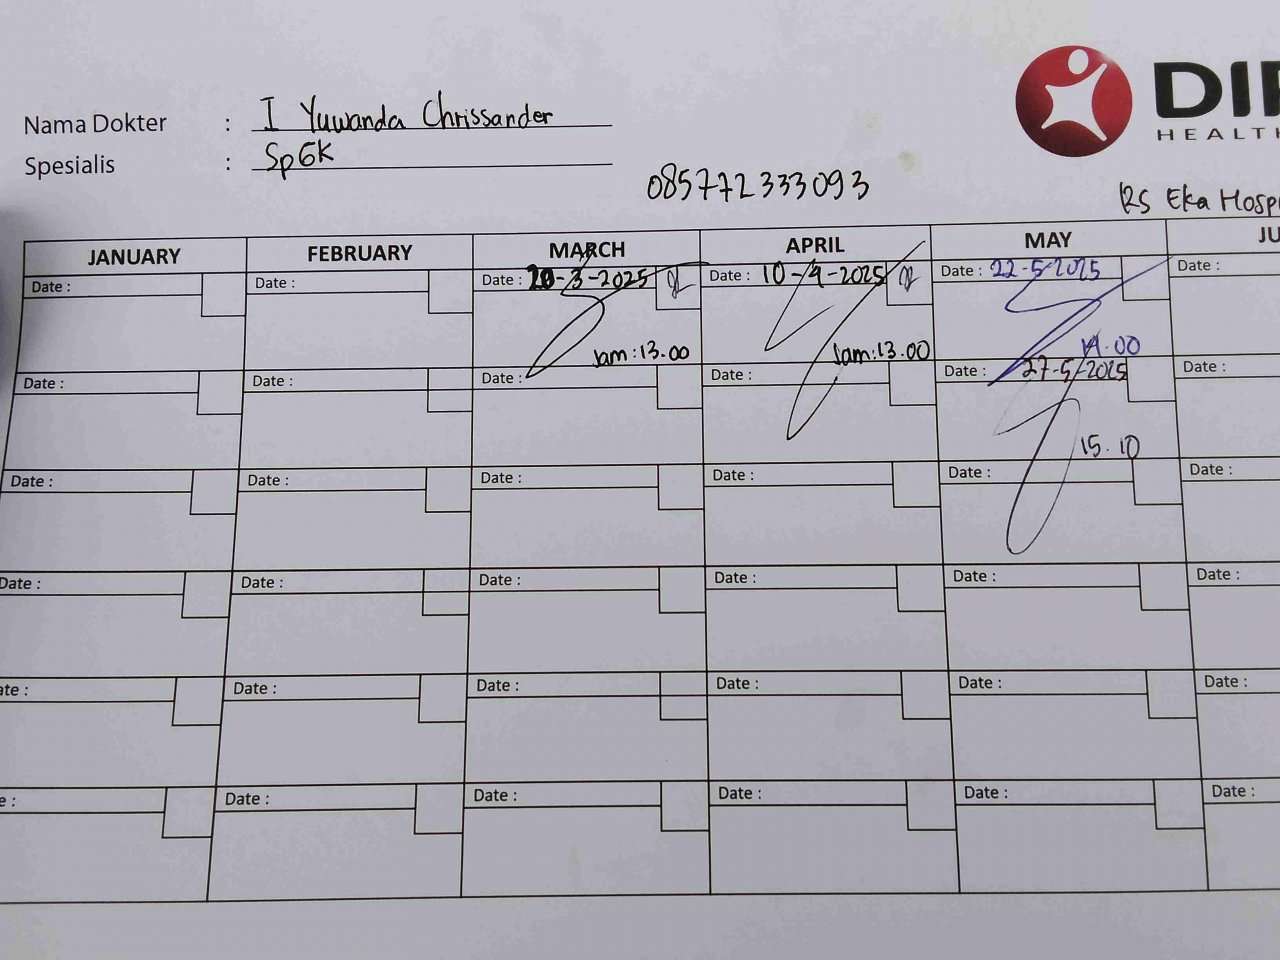 Nama Dokter : I Yuwanda Chrissander
Spesialis : SpGK
085772333093
HEALTH
RS Eka Hosp
JANUARY FEBRUARY MARCH APRIL MAY JU
Date : Date : Date : 20-3-2025 Date : 10-4-2025 Date : 22-5-2025 Date :
Jam : 13.00 Jam : 13.00 14.00
Date : Date : Date : Date : Date : 27-5-2025 Date :
15.10
Date : Date : Date : Date : Date : Date :
Date : Date : Date : Date : Date : Date :
ate : Date : Date : Date : Date : Date :
e : Date : Date : Date : Date : Date :